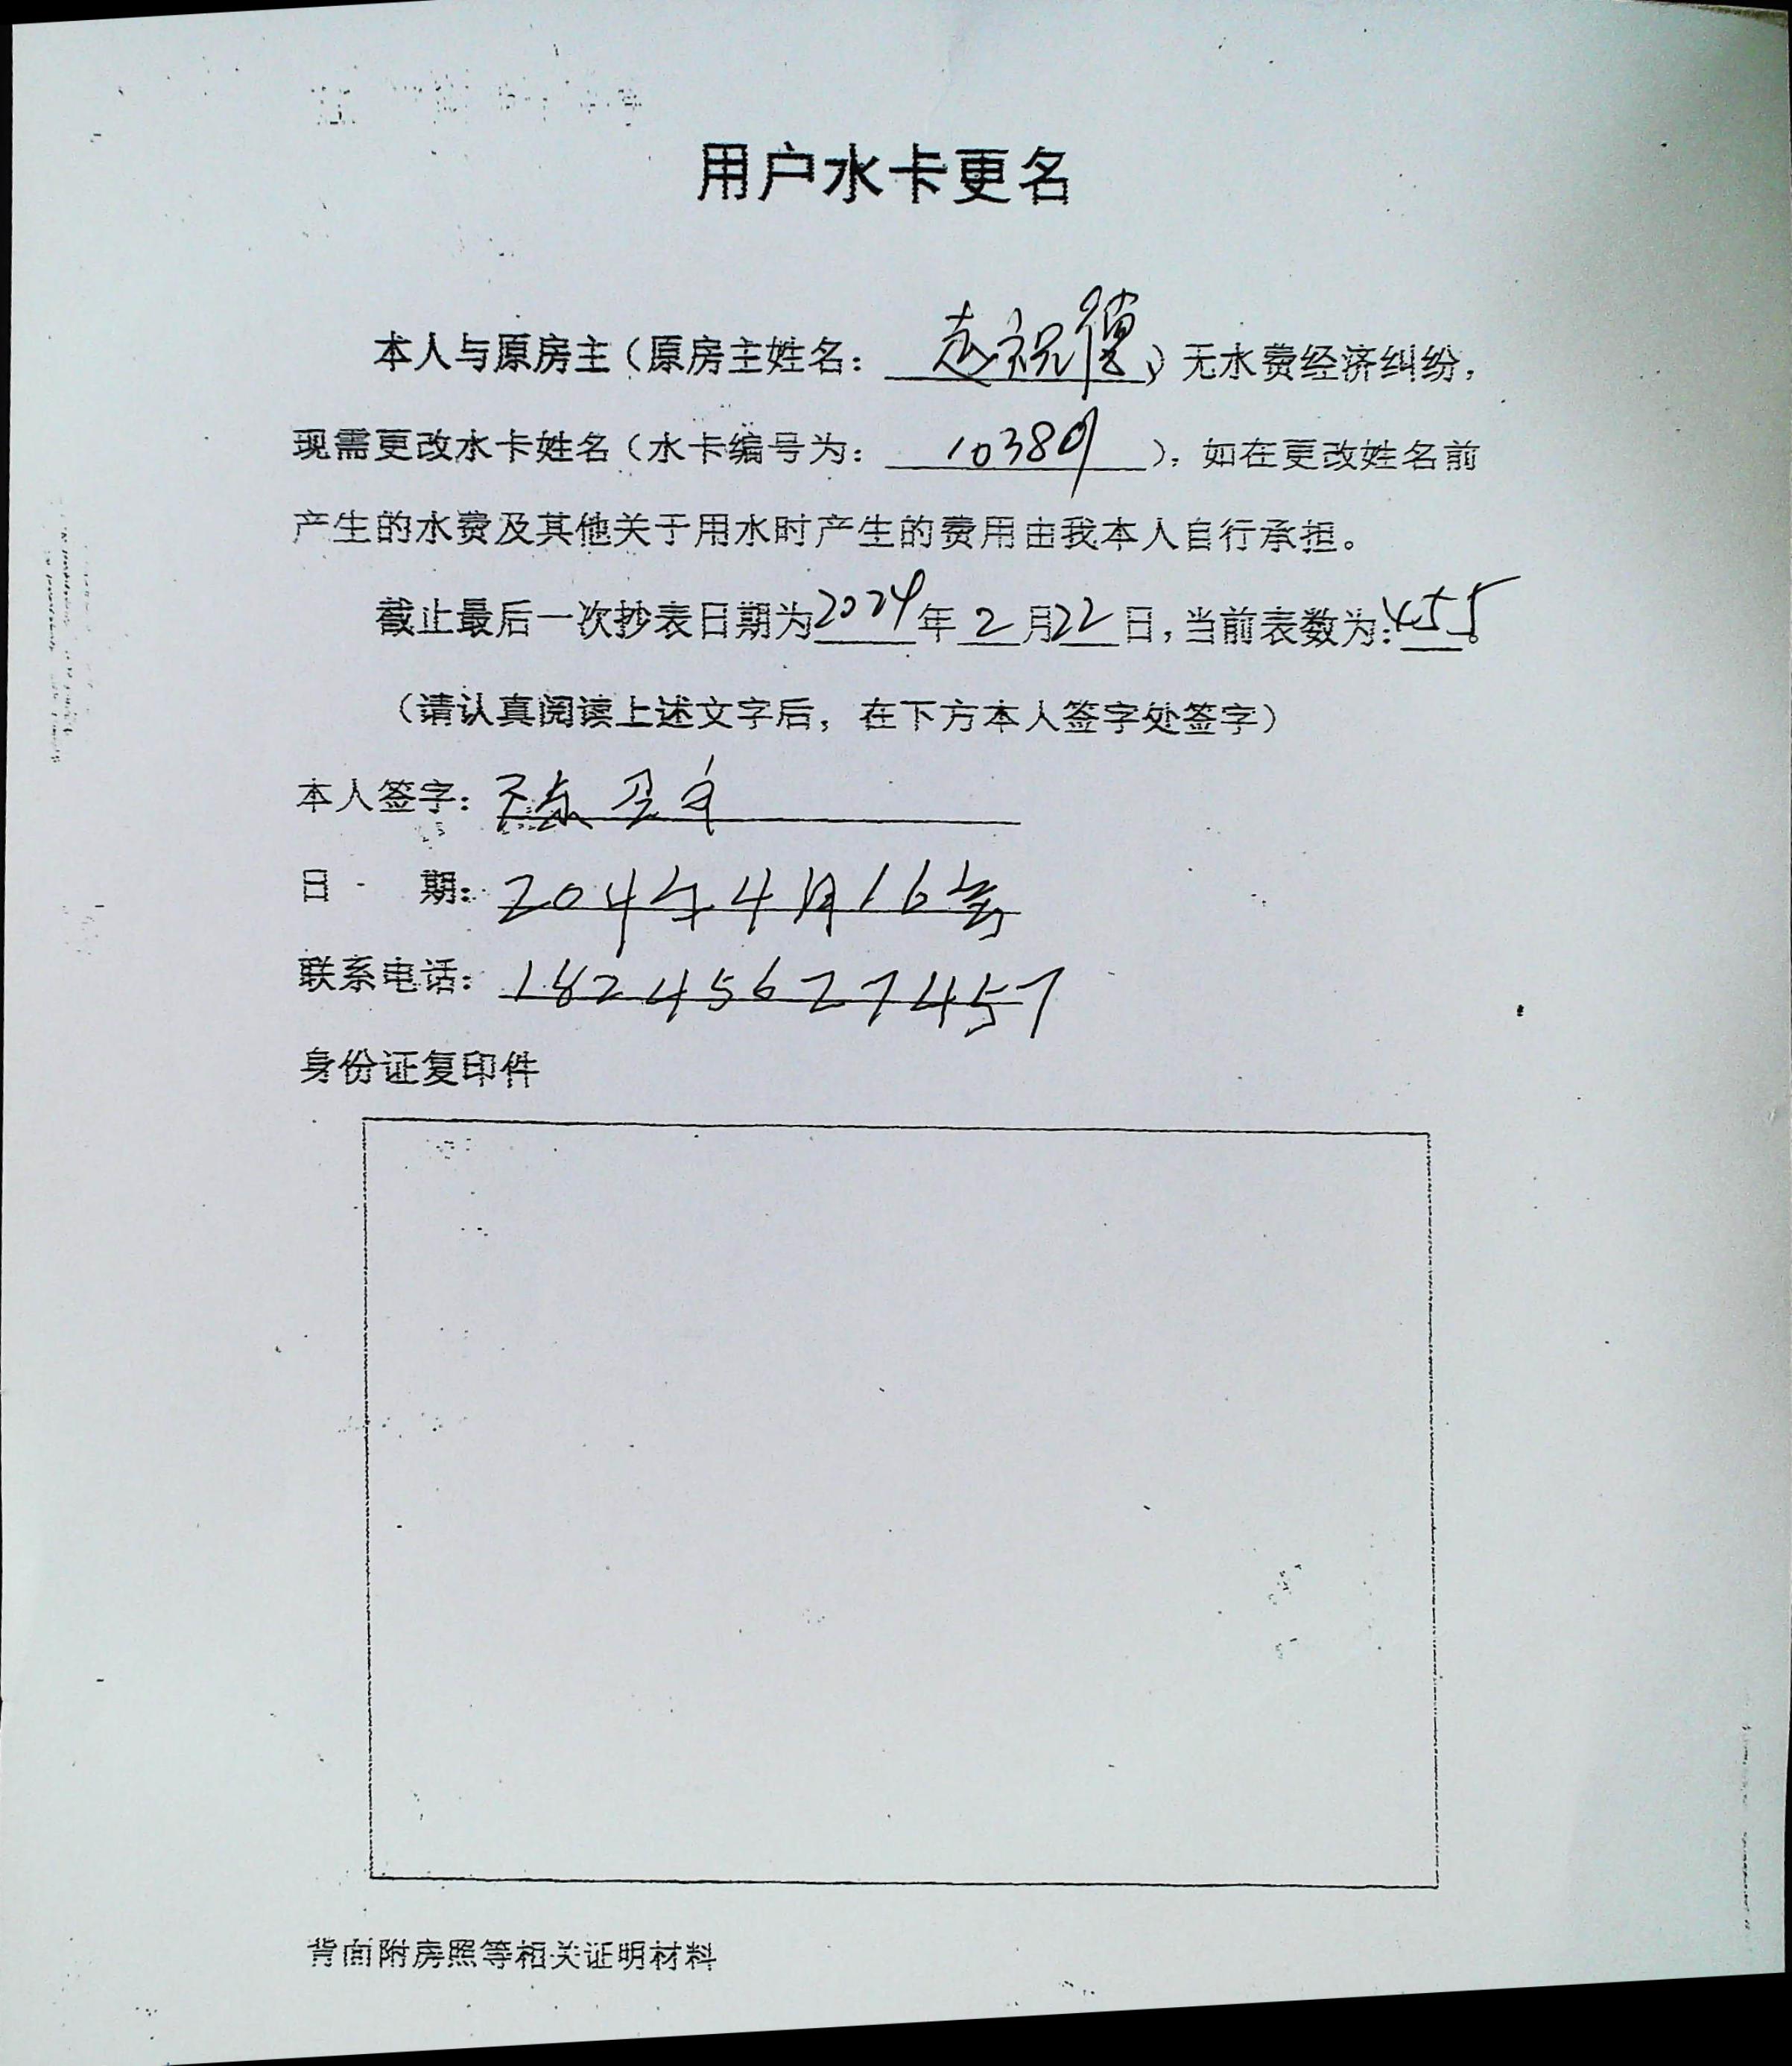 用户水卡更名
本人与原房主（原房主姓名：赵祝德）无水费经济纠纷，
现需更改水卡姓名（水卡编号为：10389），如在更改姓名前
产生的水费及其他关于用水时产生的费用由我本人自行承担。
截止最后一次抄表日期为2024年2月22日，当前表数为：455。
（请认真阅读上述文字后，在下方本人签字处签字）
本人签字：陈
日 期：204年4月16号
联系电话：18245627457
身份证复印件
背面附房照等相关证明材料